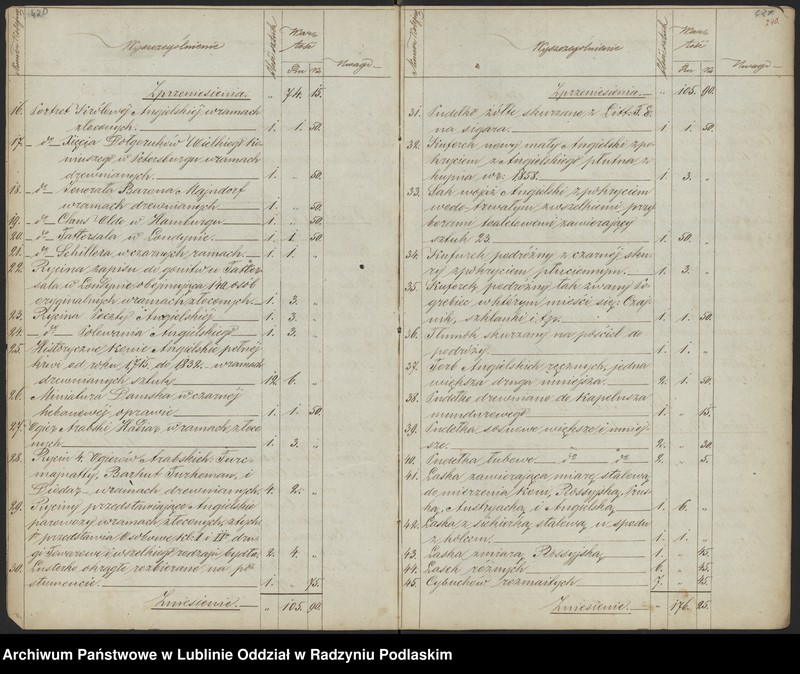 420
Wyszczególnienie
Ilość sztuk
Wartość
Ru K
Uwagi
Z przeniesienia „ 74. 15.
16. Portret Królowéj Angielskiéj w ramach
złoconych. 1. 1. 50.
17. _ do_ Xięcia Dołgorukow Wielkiego Koniuszego w Petersburgu w ramach
drzewnianych. 1. „ 50.
18. _ do_ Jenerała Barona Majndorf
w ramach drzewnianych 1. „ 50.
19. _ do_ Claus Olde w Hamburgu 1. „ 50.
20. _ do_ Tattersala w Londynie. 1. 1. 50.
21. _ do_ Schillera w czarnych ramach. 1. 1. „
22. Rycina zapisu do gonitw u Tattersala w Londynie obejmująca 140 osób
oryginalnych w ramach złoconych. 1. 3. „
23. Rycina Poczty Angielskiéj 1. 3. „
24. _ do_ Polowania Angielskiego 1. 3. „
25. Historyczne konie Angielskie pełnéj
krwi od roku 1715. do 1832. w ramach
drzewnianych sztuk 12. 6. „
26. Miniatura Damska w czarnéj
hebanowéj oprawie 1. 1. 50.
27. Ogier Arabski w ramach złoconych 1. 3. „
28. Rycin 4. Ogierów Arabskich:
Barhut Turkoman, i
w ramach drzewnianych. 4. 2. „
29. Ryciny przedstawiające Angielskie
parowozy w ramach złoconych, z tych
1. przedstawia Osobowe kl: I i II drugi Towarowe i wszelkiego rodzaju bydło. 2. 4. „
30. Lusterko okrągłe rozbierane na postumencie. 1. „ 75.
Zniesienie. „ 105. 90.
240
Wyszczególnienie
Ilość sztuk
Wartość
Ru K
Uwagi
Z przeniesienia „ 105. 90.
31. Pudełko żółte skurzane z Litt: F. E.
na sigara. 1. 1. 50.
32. Kuferek nowy mały Angielski z pokryciem z Angielskiego płutna zkupna w r: 1858. 1. 3. „
33. Sak wojaż Angielski z pokryciem
wodo-trwałym z wszelkiemi przyborami toaletowemi zawierający
sztuk 23. 1. 50. „
34. Kuferek podróżny z czarnéj skury z pokryciem płuciennym. 1. 3. „
35. Kuferek podróżny tak zwany pogrebiec w którym mieści się: Czajnik, szklanki i t.p. 1. 1. 50.
36. Tłumok skurzany na pościel do
podróży. 1. 1. „
37. Torb Angielskich ręcznych, jedna
większa druga mniejsza. 2. 1. 50.
38. Pudełko drewniane do kapelusza
mundurowego 1. „ 15.
39. Pudełka sosnowe większe i mniejsze. 2. „ 30.
40. Pudełka łubowe _ do _ do 2. „ 5.
41. Laska zawierająca miarę stalową
do mierzenia koni, Rossyjską, Pruską, Austryacką i Angielską 1. 6. „
42. Laska z siekierką stalową u spodu
z kolcem. 1. 1. „
43. Laska z miarą Rossyjską 1. „ 45.
44. Lasek różnych 6. „ 45.
45. Cybuchów rozmaitych 7. „ 45.
Zniesienie. „ 176. 25.
Archiwum Państwowe w Lublinie Oddział w Radzyniu Podlaskim